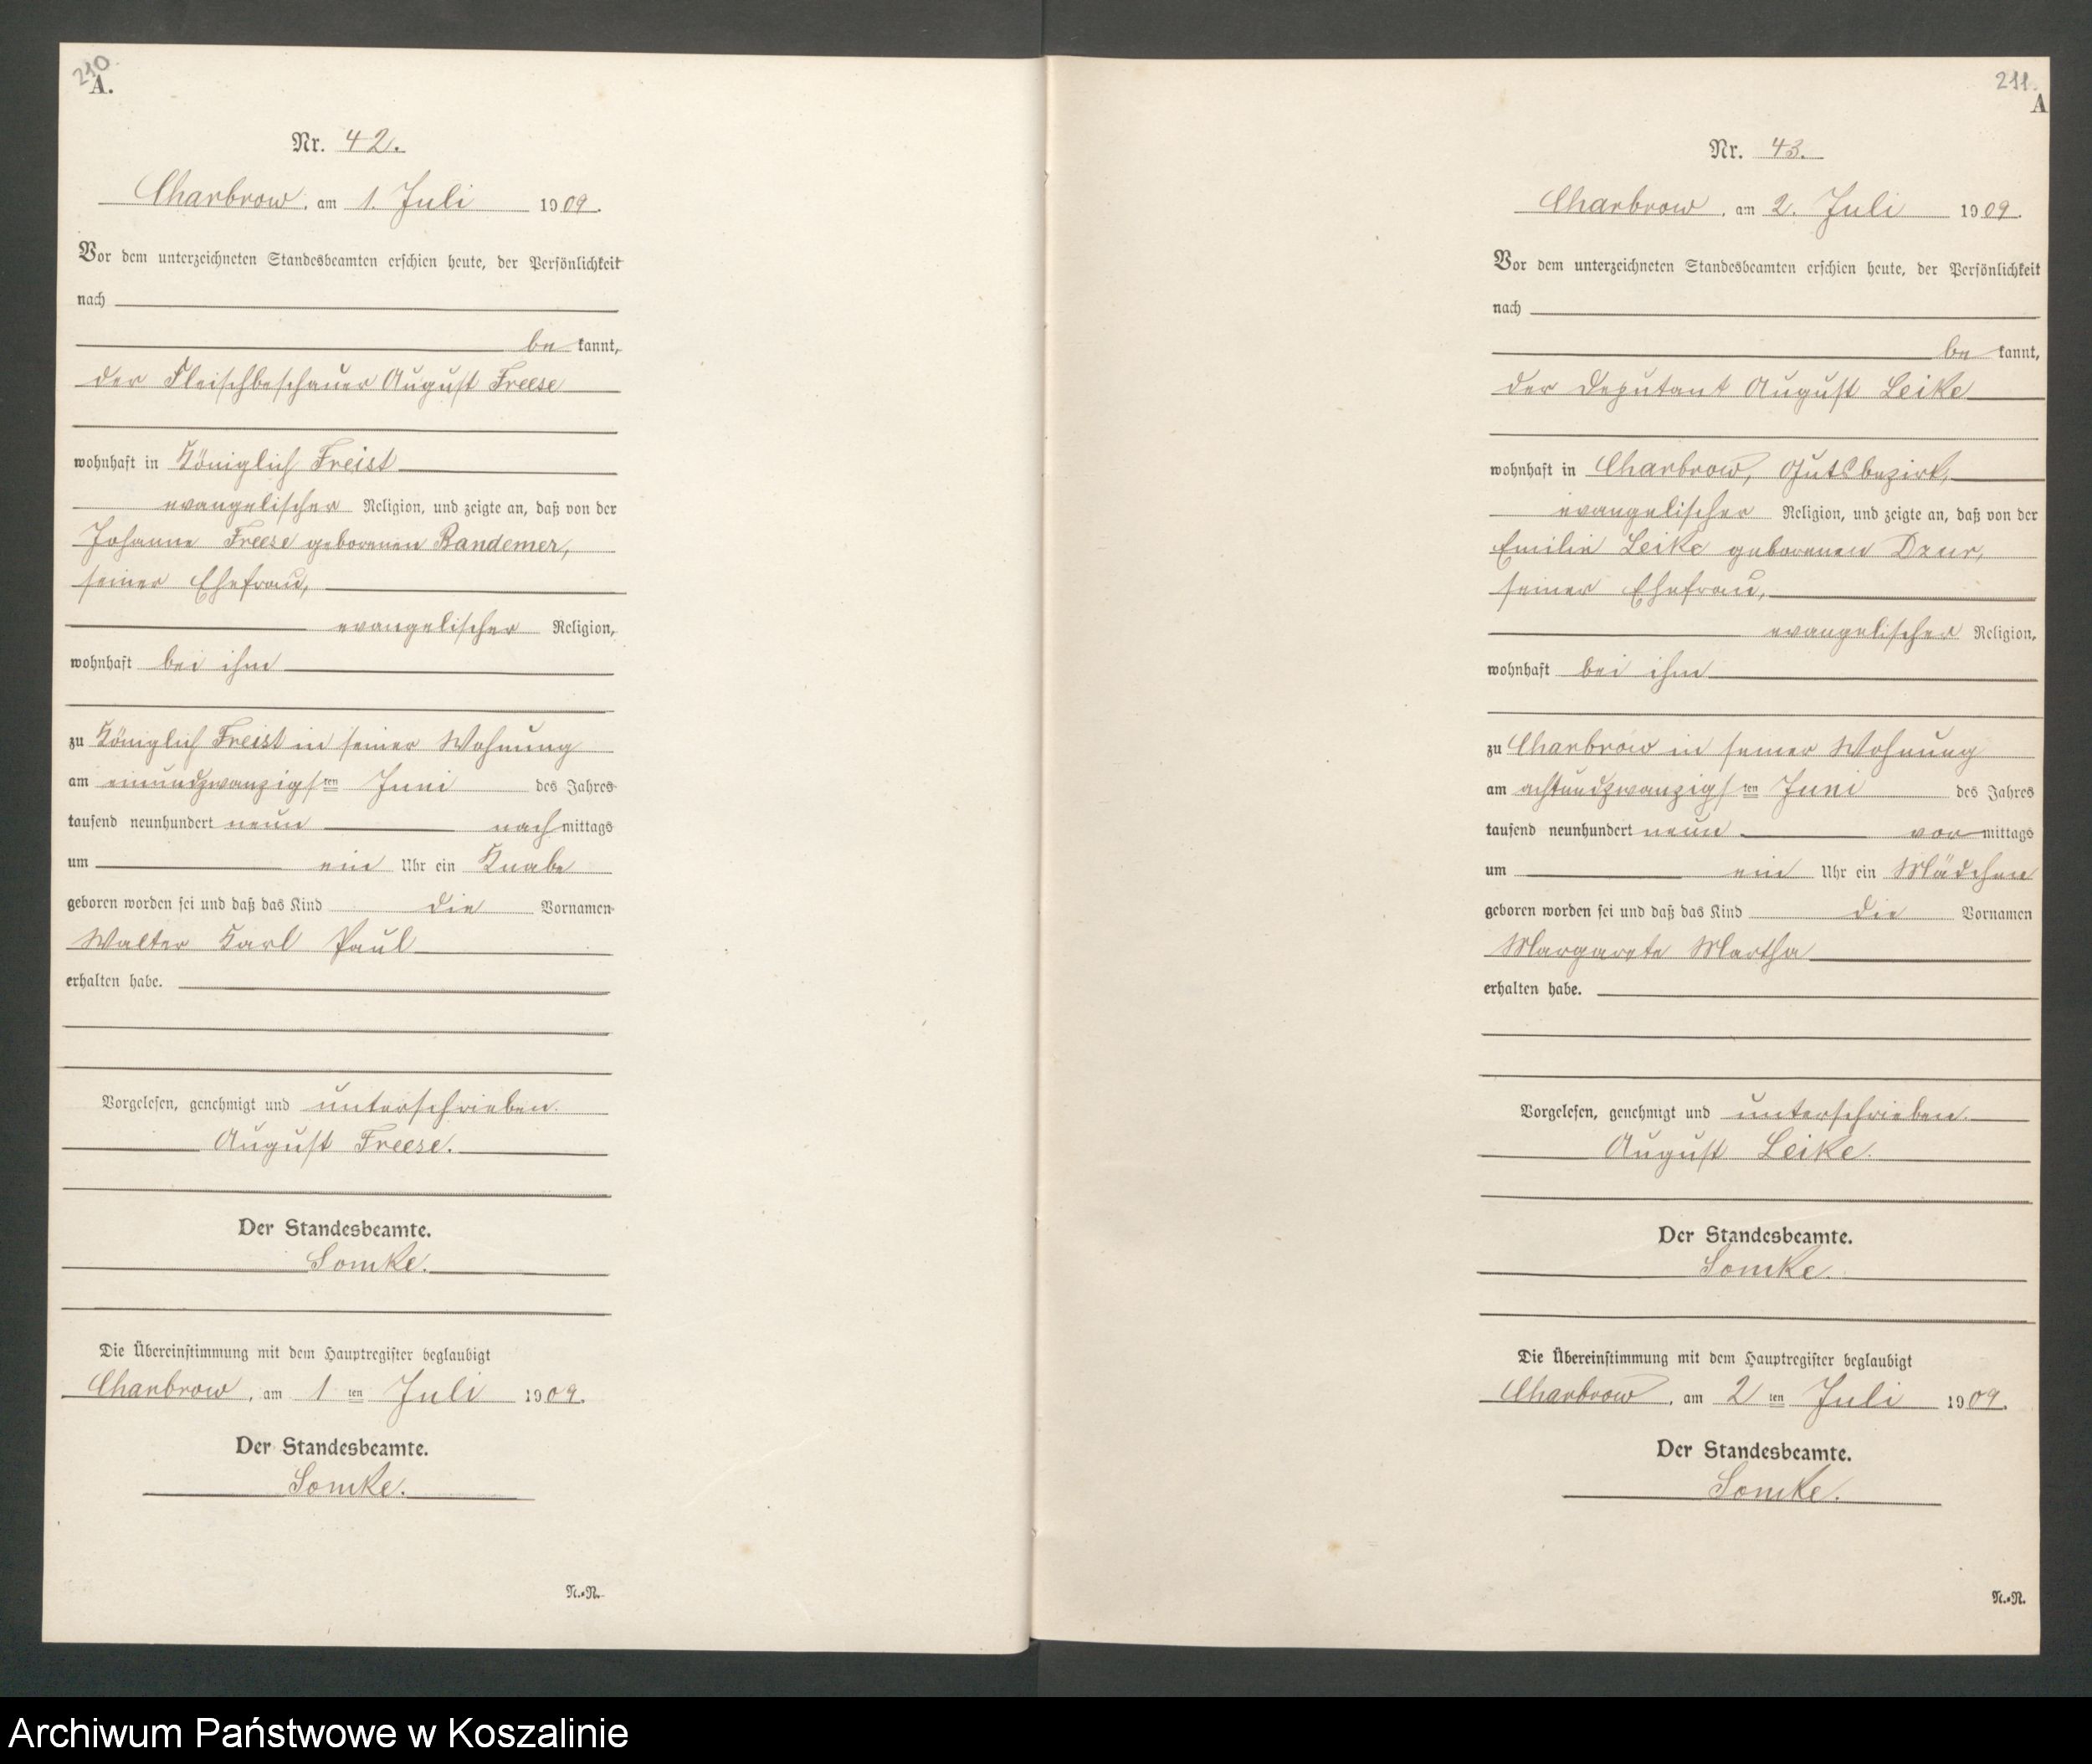 210.
A.
Nr. 42.
Charbrow, am 1. Juli 1909.
Vor dem unterzeichneten Standesbeamten erschien heute, der Persönlichkeit
nach
be kannt,
der Fleischbeschauer August Freese
wohnhaft in Königlich Freist
evangelischer Religion, und zeigte an, daß von der
Johanne Freese geborenen Bandemer,
seiner Ehefrau,
evangelischer Religion,
wohnhaft bei ihm
zu Königlich Freist in seiner Wohnung
am einundzwanzigsten Juni des Jahres
tausend neunhundert neun nachmittags
um ein Uhr ein Knabe
geboren worden sei und daß das Kind die Vornamen
Walter Karl Paul
erhalten habe.
Vorgelesen, genehmigt und unterschrieben.
August Freese.
Der Standesbeamte.
Somke.
Die Übereinstimmung mit dem Hauptregister beglaubigt
Charbrow, am 1 ten Juli 1909.
Der Standesbeamte.
Somke.
N.-N.
211.
A
Nr. 43.
Charbrow, am 2. Juli 1909.
Vor dem unterzeichneten Standesbeamten erschien heute, der Persönlichkeit
nach
be kannt,
der Deputant August Leike
wohnhaft in Charbrow, Gutsbezirk,
evangelischer Religion, und zeigte an, daß von der
Emilie Leike geborenen Dzur,
seiner Ehefrau,
evangelischer Religion,
wohnhaft bei ihm
zu Charbrow in seiner Wohnung
am achtundzwanzigsten Juni des Jahres
tausend neunhundert neun vormittags
um ein Uhr ein Mädchen
geboren worden sei und daß das Kind die Vornamen
Margarete Martha
erhalten habe.
Vorgelesen, genehmigt und unterschrieben.
August Leike.
Der Standesbeamte.
Somke.
Die Übereinstimmung mit dem Hauptregister beglaubigt
Charbrow, am 2 ten Juli 1909.
Der Standesbeamte.
Somke.
N.-N.
Archiwum Państwowe w Koszalinie